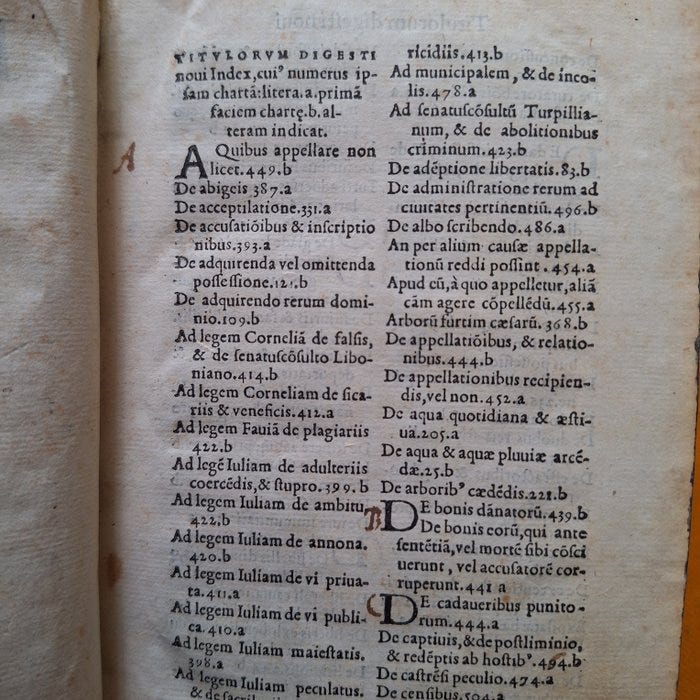 TITVLORVM DIGESTI
noui Index,cuiꝰ numerus ip-
sam chartā:litera.a.primā
faciem chartę.b.al-
teram indicat.
A
A Quibus appellare non
licet.449.b
De abigeis 387.a
De acceptilatione.331.a
De accusatiōibus & inscriptio
nibus.393.a
De adquirenda vel omittenda
possessione.121.b
De adquirendo rerum domi-
nio.109.b
Ad legem Corneliā de falsis,
& de senatuscōsulto Libo-
niano.414.b
Ad legem Corneliam de sica-
riis & veneficis.412.a
Ad legem Fauiā de plagiariis
422.b
Ad legē Iuliam de adulteriis
coercēdis,& stupro.399.b
Ad legem Iuliam de ambitu
422.b
Ad legem Iuliam de annona.
420.b
Ad legem Iuliam de vi priua-
ta.411.a
Ad legem Iuliam de vi publi-
ca.410.a
Ad legem Iuliam maiestatis.
398.a
Ad legem Iuliam peculatus.
& de sacril
ricidiis.413.b
Ad municipalem, & de inco-
lis.478.a
Ad senatuscōsultū Turpillia-
num, & de abolitionibus
criminum.423.b
De adēptione libertatis.83.b
De administratione rerum ad
ciuitates pertinentiū.496.b
De albo scribendo.486.a
An per alium causæ appella-
tionū reddi possint.454.a
Apud eū,à quo appelletur,aliā
cām agere cōpellēdū.455.a
Arborū furtim cæsarū.368.b
De appellatiōibus, & relatio-
nibus.444.b
De appellationibus recipien-
dis,vel non.452.a
De aqua quotidiana & æsti-
ua.205.a
De aqua & aquæ pluuiæ arcē-
dæ.25.b
De arboribꝰ cædēdis.221.b
B
DE bonis dānatorū.439.b
De bonis eorū,qui ante
sentētiā,vel mortē sibi cōsci
uerunt, vel accusatorē cor-
ruperunt.441 a
C
DE cadaueribus punito-
rum.444.a
De captiuis,&de postliminio,
& redēptis ab hostibꝰ.494.b
De castrēsi peculio.474.a
De censibus.504.a